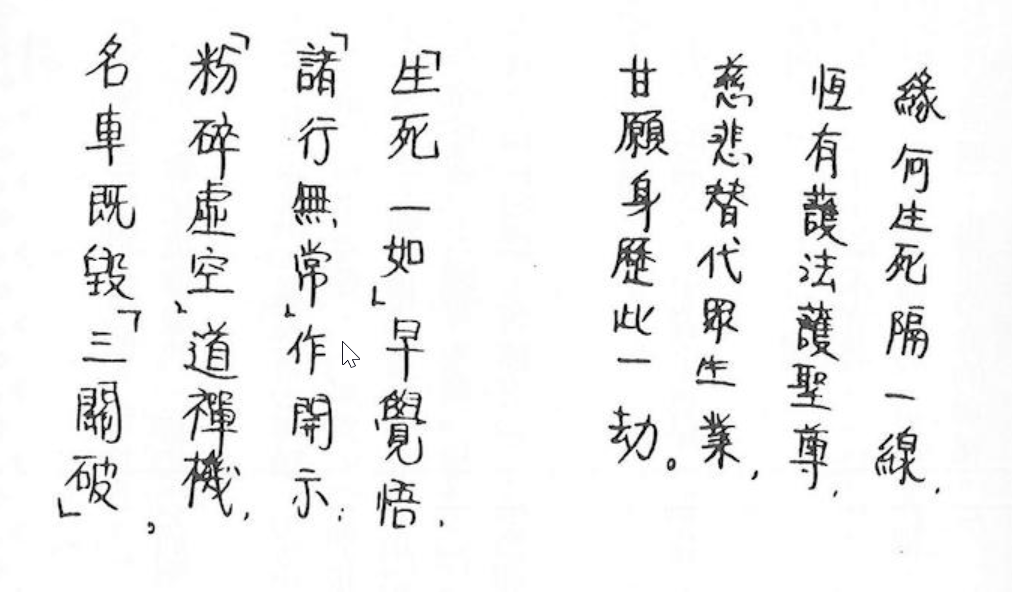 緣何生死隔一線，
恆有護法護聖尊，
慈悲替代眾生業，
甘願身歷此一劫。
「生死一如」早覺悟，
「諸行無常」作開示；
「粉碎虛空」道禪機，
名車既毀「三關破」，